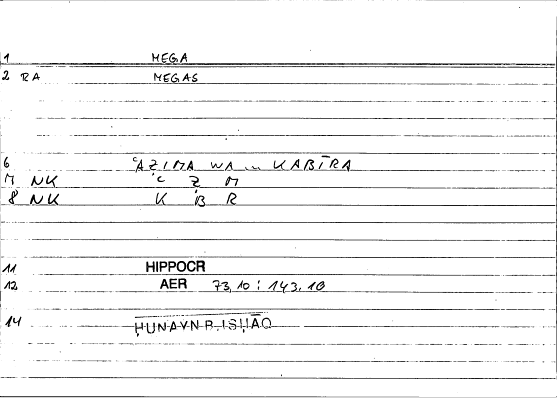 1 MEGA
2 RA MEGAS
6 ʿAẒĪMA WA ... KABĪRA
7 NK ʿ Ẓ M
8 NK K B R
11 HIPPOCR
12 AER 73,10 : 143.10
14 ḤUNAYN B. ISḤĀQ